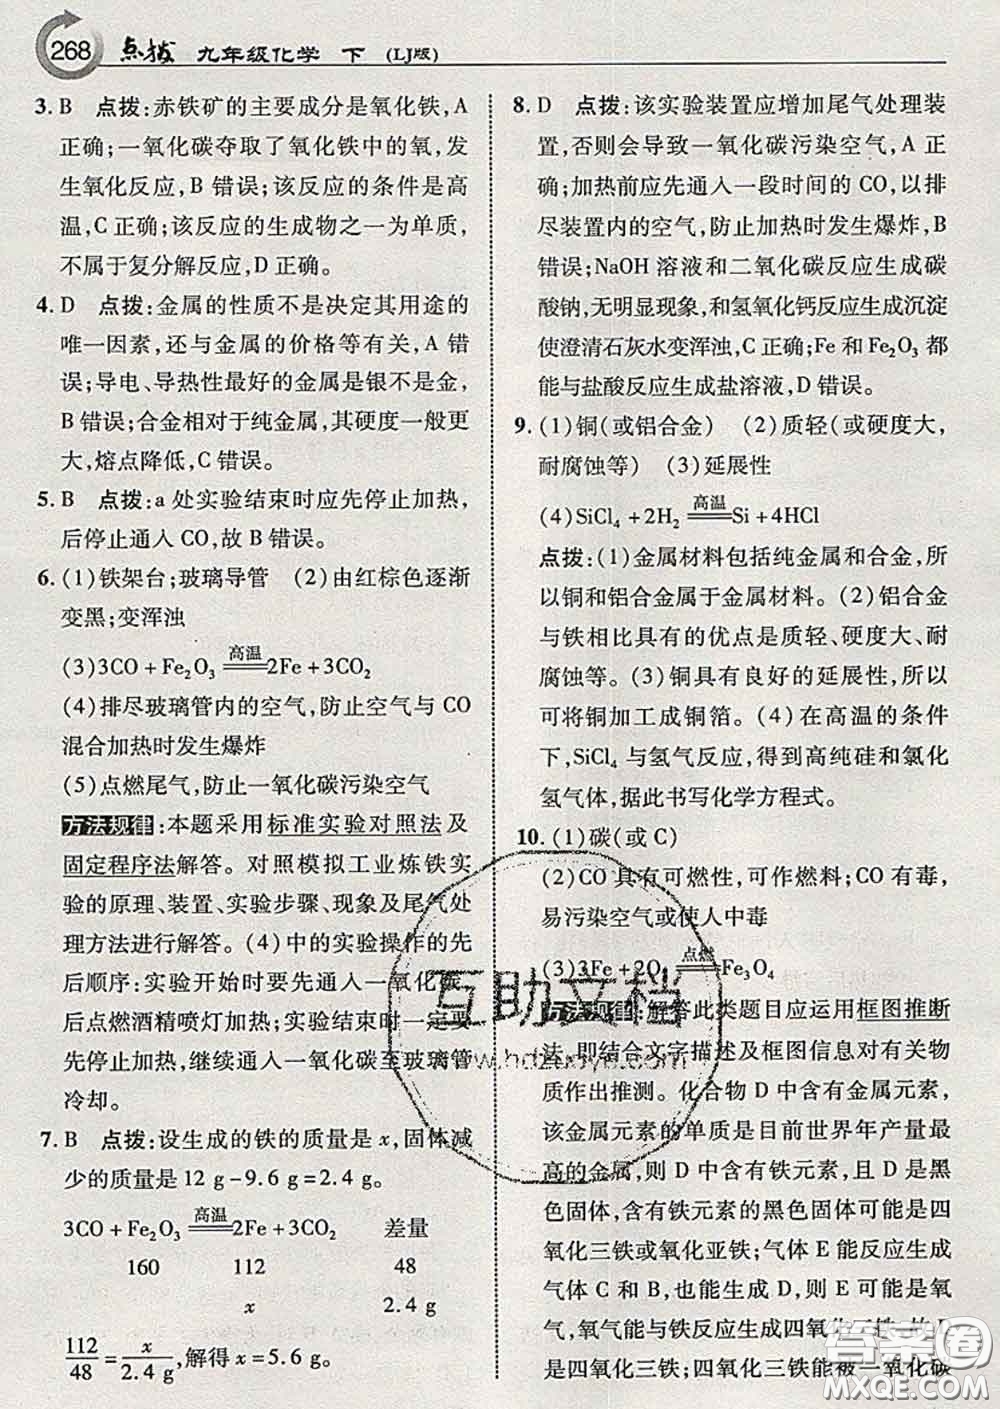 268 点拨 九年级化学 下 (LJ版)
3. B 点拨:赤铁矿的主要成分是氧化铁,A
正确;一氧化碳夺取了氧化铁中的氧,发
生氧化反应,B 错误;该反应的条件是高
温,C 正确;该反应的生成物之一为单质,
不属于复分解反应,D 正确。
4. D 点拨:金属的性质不是决定其用途的
唯一因素,还与金属的价格等有关,A 错
误;导电、导热性最好的金属是银不是金,
B 错误;合金相对于纯金属,其硬度一般更
大,熔点降低,C 错误。
5. B 点拨:a 处实验结束时应先停止加热,
后停止通入 CO,故 B 错误。
6. (1)铁架台;玻璃导管 (2)由红棕色逐渐
变黑;变浑浊
(3)3CO + Fe₂O₃ =高温= 2Fe + 3CO₂
(4)排尽玻璃管内的空气,防止空气与 CO
混合加热时发生爆炸
(5)点燃尾气,防止一氧化碳污染空气
方法规律:本题采用标准实验对照法及
固定程序法解答。对照模拟工业炼铁实
验的原理、装置、实验步骤、现象及尾气处
理方法进行解答。(4)中的实验操作的先
后顺序:实验开始时要先通入一氧化碳,
后点燃酒精喷灯加热;实验结束时一定要
先停止加热,继续通入一氧化碳至玻璃管
冷却。
7. B 点拨:设生成的铁的质量是 x,固体减
少的质量是 12 g - 9.6 g = 2.4 g。
3CO + Fe₂O₃ =高温= 2Fe + 3CO₂ 差量
160 112 48
x 2.4 g
112/48 = x/2.4 g,解得 x = 5.6 g。
8. D 点拨:该实验装置应增加尾气处理装
置,否则会导致一氧化碳污染空气,A 正
确;加热前应先通入一段时间的 CO,以排
尽装置内的空气,防止加热时发生爆炸,B
错误;NaOH 溶液和二氧化碳反应生成碳
酸钠,无明显现象,和氢氧化钙反应生成沉淀
使澄清石灰水变浑浊,C 正确;Fe 和 Fe₂O₃ 都
能与盐酸反应生成盐溶液,D 错误。
9. (1)铜(或铝合金) (2)质轻(或硬度大,
耐腐蚀等) (3)延展性
(4)SiCl₄ + 2H₂ =高温= Si + 4HCl
点拨:(1)金属材料包括纯金属和合金,所
以铜和铝合金属于金属材料。(2)铝合金
与铁相比具有的优点是质轻、硬度大、耐
腐蚀等。(3)铜具有良好的延展性,所以
可将铜加工成铜箔。(4)在高温的条件
下,SiCl₄ 与氢气反应,得到高纯硅和氯化
氢气体,据此书写化学方程式。
10. (1)碳(或 C)
(2)CO 具有可燃性,可作燃料;CO 有毒,
易污染空气或使人中毒
(3)3Fe + 2O₂ =点燃= Fe₃O₄
方法规律:解答此类题目应运用框图推断
法,即结合文字描述及框图信息对有关物
质作出推测。化合物 D 中含有金属元素,
该金属元素的单质是目前世界年产量最
高的金属,则 D 中含有铁元素,D 是黑色
固体,含有铁元素的黑色固体可能是四
氧化三铁或氧化亚铁;气体 E 能反应生成
气体 C 和 B,也能生成 D,则 E 可能是氧
气,氧气能与铁反应生成四氧化三铁,故 D
是四氧化三铁;四氧化三铁能被一氧化碳
互助文档
www.hdzuoye.com
答案圈
MXQE.COM